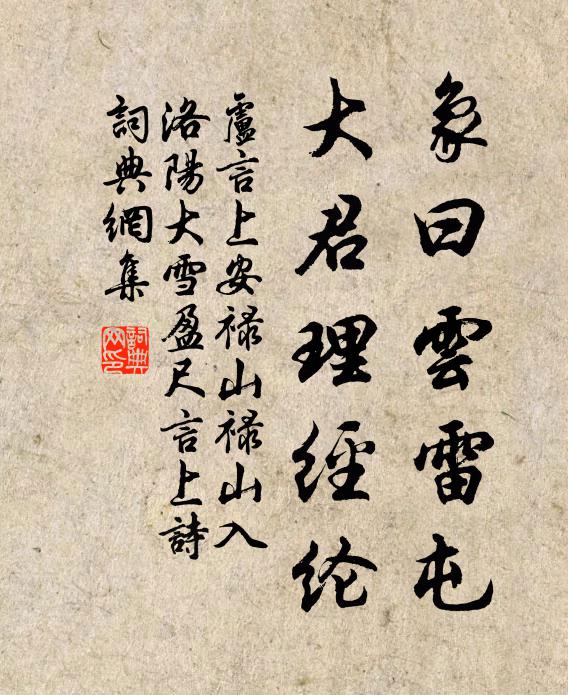 象曰雲雷屯
大君理經纶
盧言上安禄山禄山入
洛陽大雪盈尺言上詩
詞典網集
詞典
网印